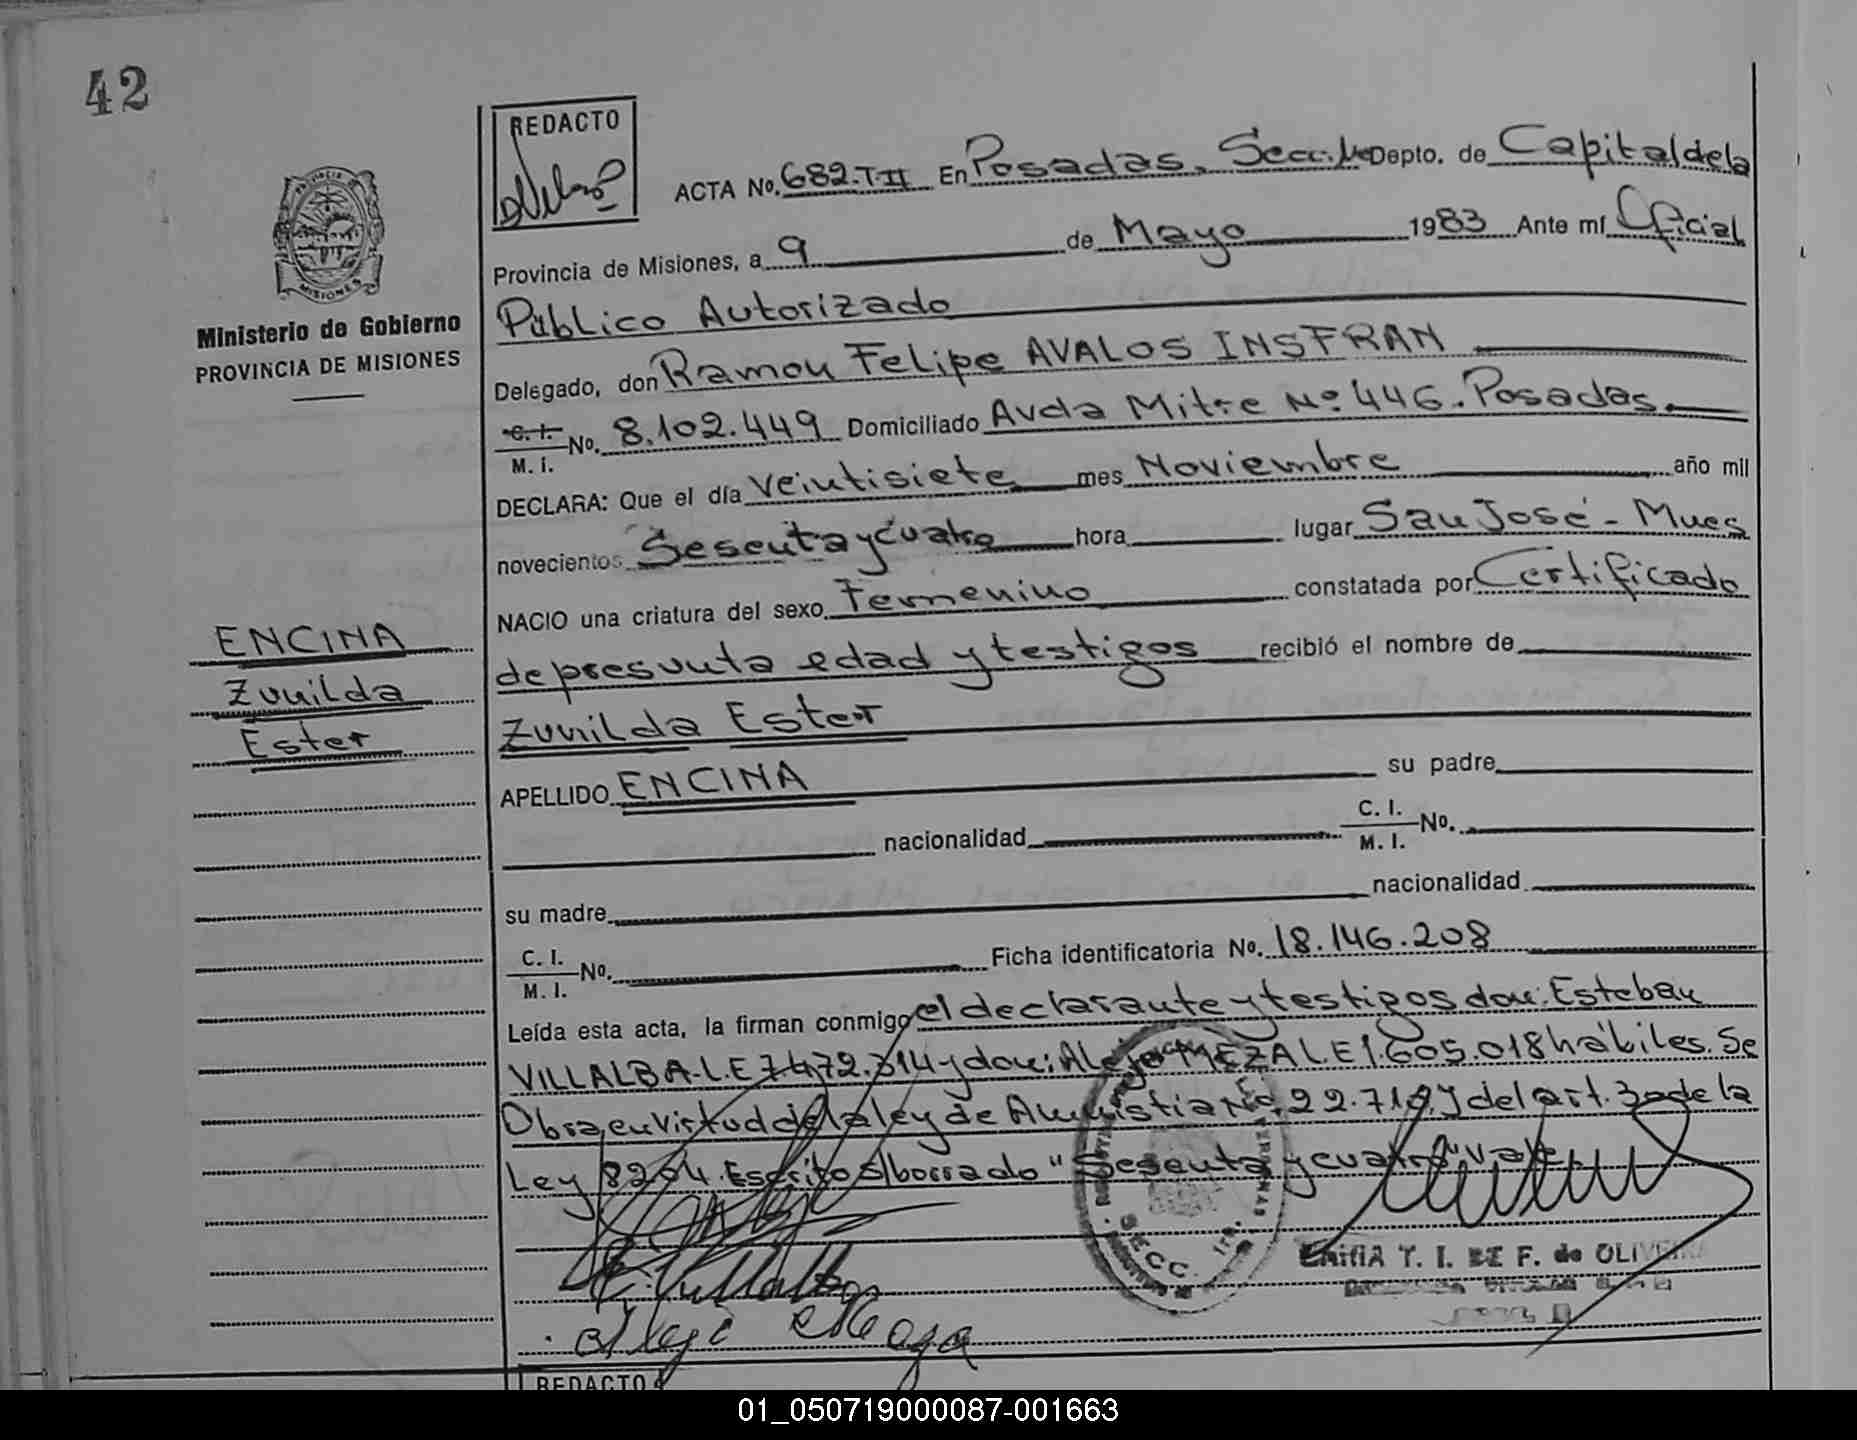 42
REDACTO
ACTA No. 682.T II En Posadas, Secc. Depto. de Capital de la
Provincia de Misiones, a 9 de Mayo 1983 Ante mí Oficial
Público Autorizado
Delegado, don Ramon Felipe AVALOS INSFRAN
C. I.
M. I. No. 8.102.449 Domiciliado Avda Mitre Nº 446. Posadas.
DECLARA: Que el día veintisiete mes Noviembre año mil
novecientos Sesenta y cuatro hora lugar San José - Mnes
NACIO una criatura del sexo Femenino constatada por Certificado
de presunta edad y testigos recibió el nombre de
Zunilda Ester
APELLIDO ENCINA su padre
nacionalidad C. I. M. I. No.
su madre nacionalidad
C. I. M. I. No. Ficha identificatoria No. 18.146.208
Leída esta acta, la firman conmigo el declarante y testigos don: Esteban
VILLALBA. L.E 7.472.314 y don: Alejo MEZA L.E 1.605.018 hábiles. Se
Obra en virtud de la ley de Amnistia No. 22.719 y del art. 3o de la
Ley 18204. Escrito s/borrado "Sesenta y cuatro" vale.
SECC.
T. I. DE F. de OLIVEIRA
Ministerio de Gobierno
PROVINCIA DE MISIONES
MISIONES
ENCINA
Zunilda
Ester
REDACTO
01_050719000087-001663